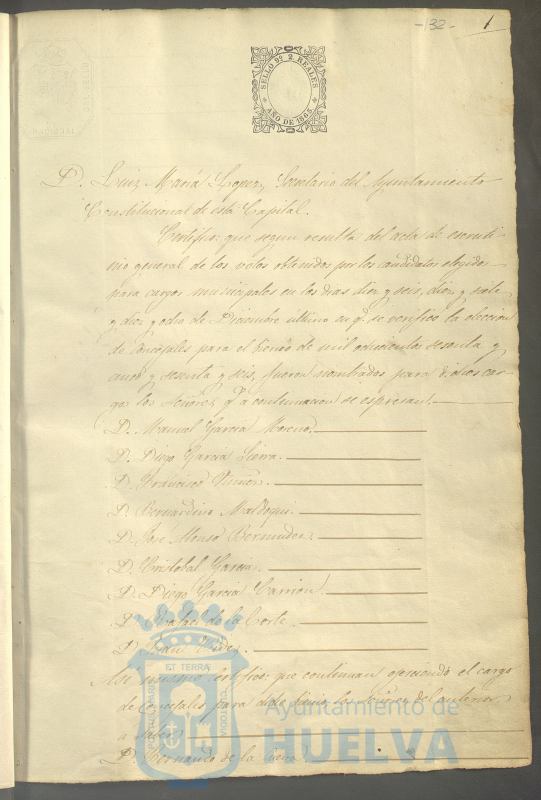 -32- 1
SELLO 9º 2 REALES
AÑO DE 1865
D. Luis Maria Lopez, Secretario del Ayuntamiento
Constitucional de esta Capital.
Certifico: que segun resulta del acta de escruti-
nio general de los votos obtenidos por los candidatos elegidos
para cargos municipales en los dias diez y seis, diez y siete
y diez y ocho de Diciembre último en q.e se verificó la eleccion
de Concejales para el bienio de mil ochocientos sesenta y
cinco y sesenta y seis, fueron nombrados para dichos car-
gos los Señores q.e a continuacion se espresan.
D. Manuel Garcia Moreno.
D. Diego Garcia Sierra.
D. Francisco
D. Bernardino
D. José Alonso Bermudez.
D. Cristobal Garcia.
D. Diego Garcia Carrion.
D. Rafael de la Corte.
D. Juan
Asi mismo certifico: que continuan ejerciendo el cargo
de Concejales para dicho bienio los Señores del anterior
a saber
D. Fernando de la
Ayuntamiento de
HUELVA
ET TERRA